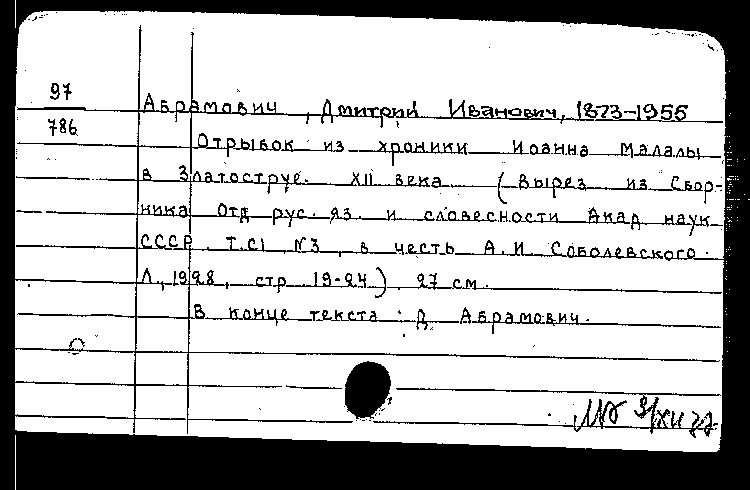 97
786
Абрамович, Дмитрий Иванович, 1873-1955
Отрывок из хроники Иоанна Малалы
в Златоструе. XII века (Вырез из Сбор-
ника Отд рус. яз. и словесности Акад наук
СССР. Т.CI, N3, в честь А.И Соболевского.
Л., 1928, стр 19-24). 27 см.
В конце текста: Д. Абрамович.